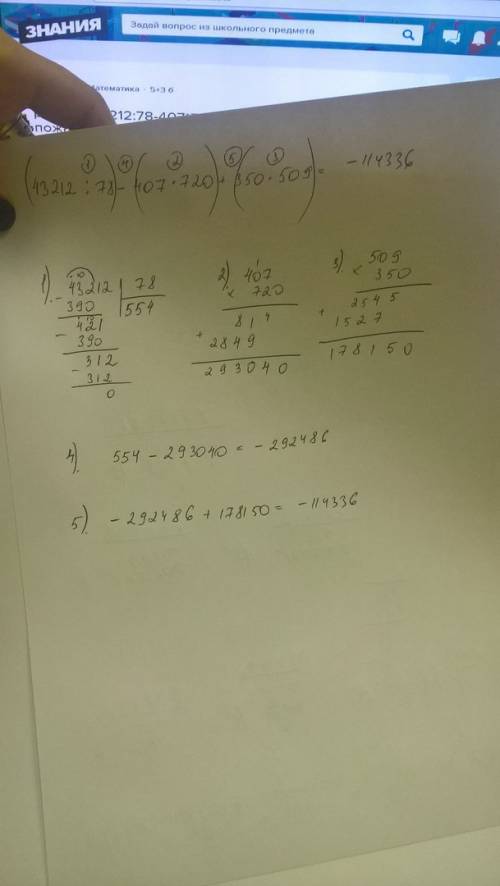 ЗНАНИЯ
Задай вопрос из школьного предмета
атематика · 5+3 б
212:78-407
(43212 : 78) - (407 · 720) + (350 · 509) = -114336
1 4 2 5 3
1). 43212 | 78
554
- 390
421
- 390
- 312
312
0
2) 407
× 720
814
+ 2849
293040
3) 509
× 350
2545
+ 1527
178150
4) 554 - 293040 = - 292486
5). - 292486 + 178150 = - 114336